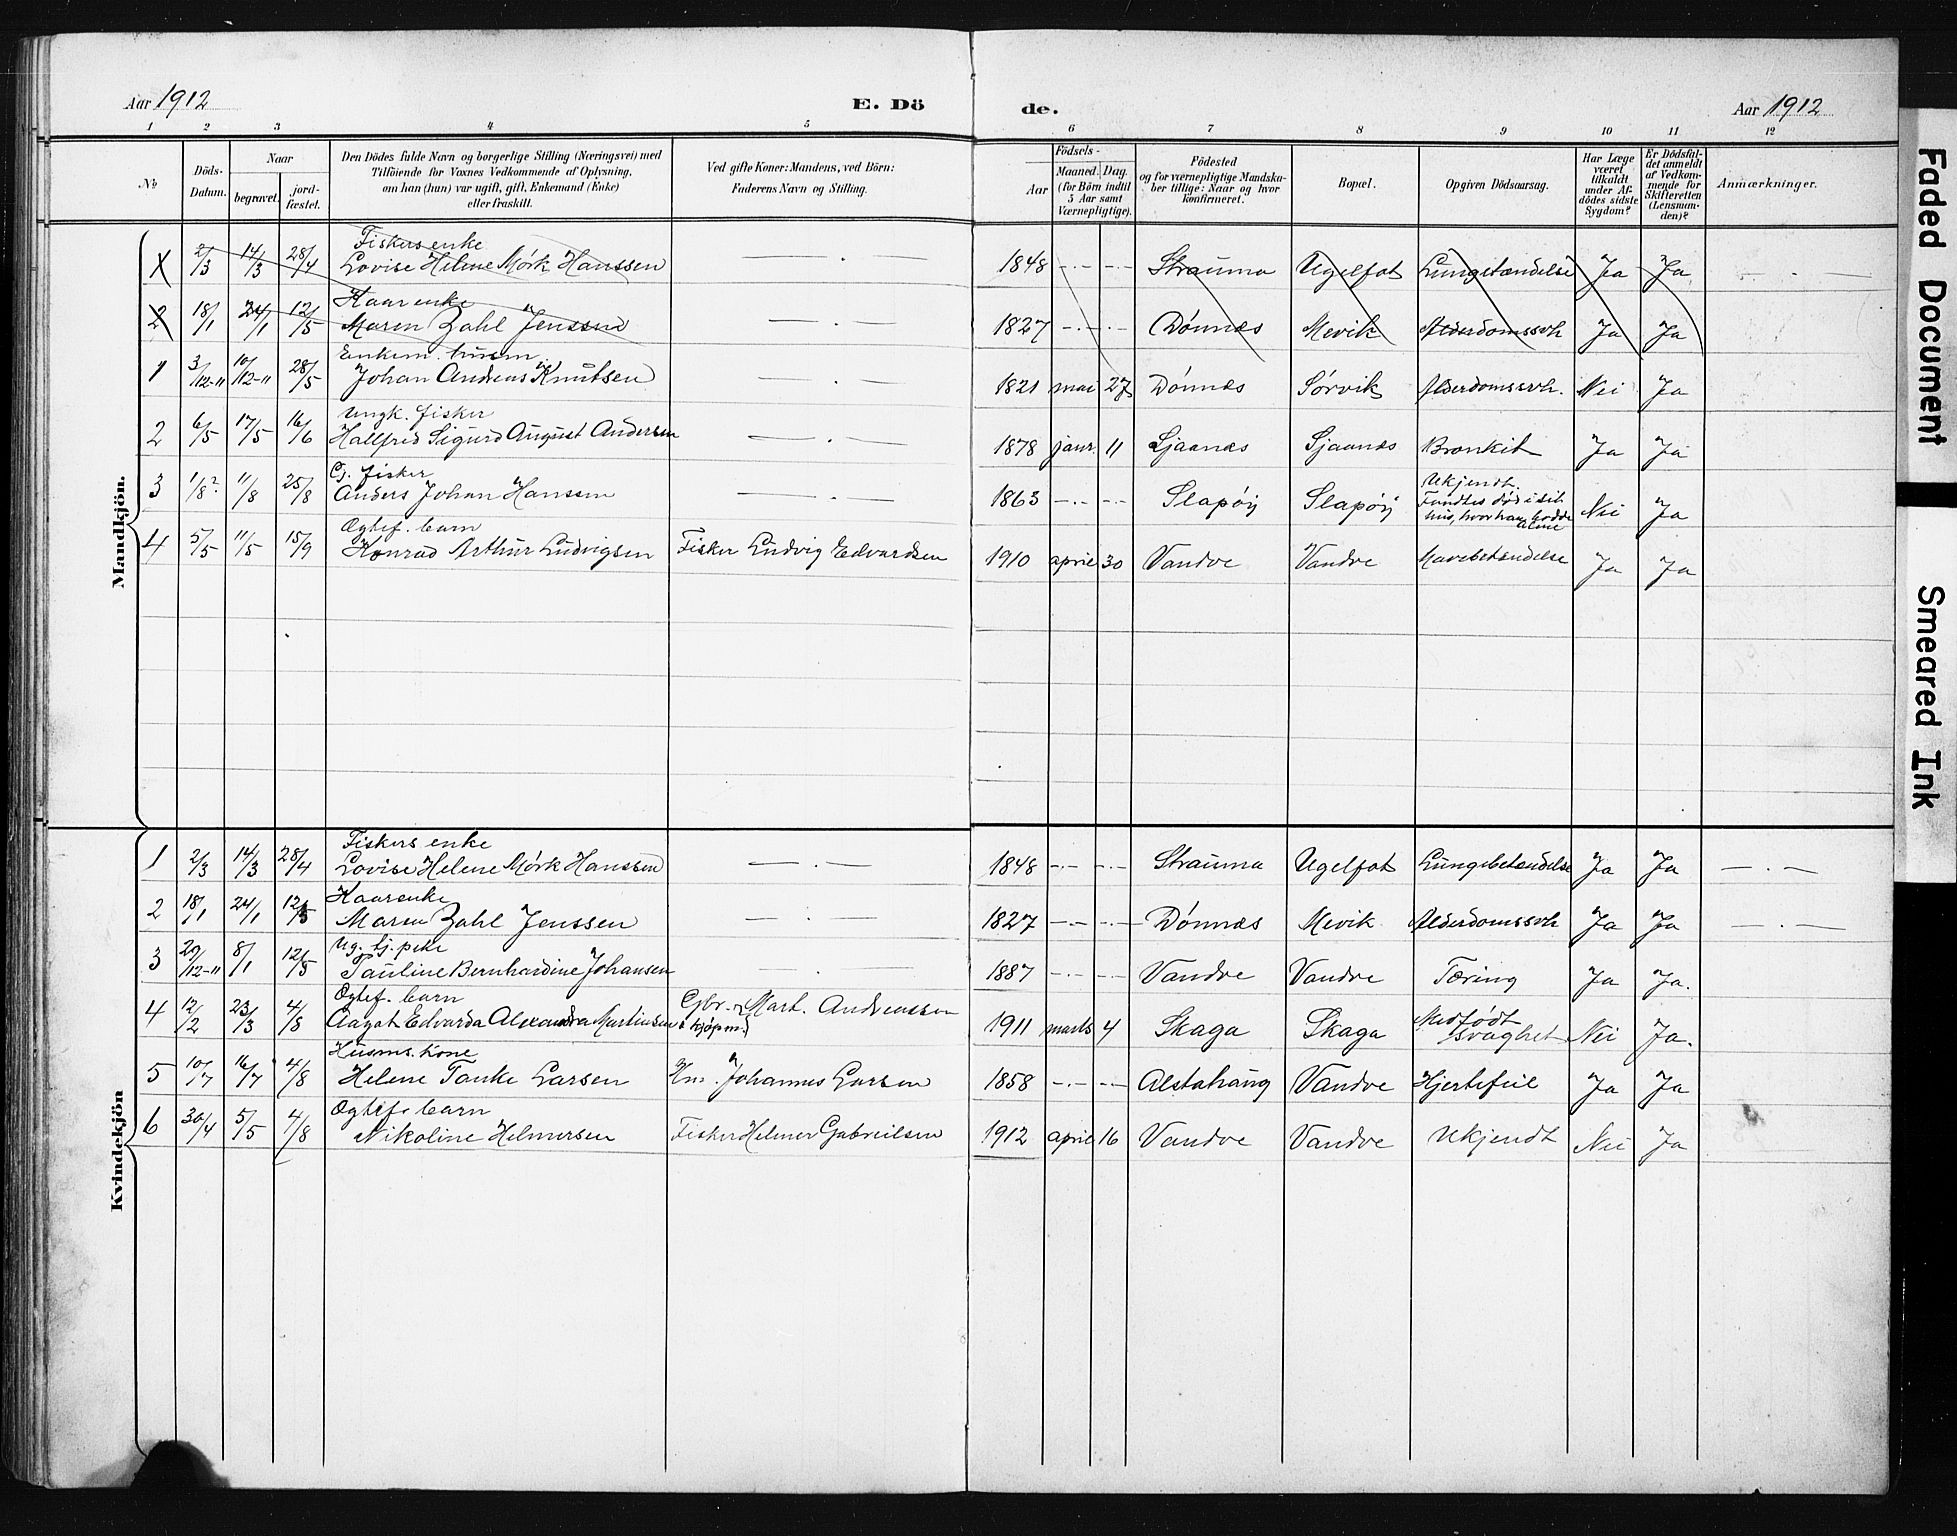 Aar 1912
E. Dö
de.
Aar 1912
1 2 3 4 5 6 7 8 9 10 11 12
No
Döds-
Datum.
Naar
begravet.
jord-
fæstet.
Den Dödes fulde Navn og borgerlige Stilling (Næringsvei) med
Tilföiende for Voxnes Vedkommende af Oplysning,
om han (hun) var ugift, gift, Enkemand (Enke)
eller fraskilt.
Ved gifte Koner: Mandens, ved Börn:
Faderens Navn og Stilling.
Födsels-
Aar
Maaned. Dag.
(for Börn indtil
5 Aar samt
Værnepligtige).
Födested
og for værnepligtige Mandska-
ber tillige: Naar og hvor
konfirmeret.
Bopæl.
Opgiven Dödsaarsag.
Har Læge
været
tilkaldt
under Af-
dödes sidste
Sygdom?
Er Dödsfal-
det anmeldt
af Vedkom-
mende for
Skifteretten
(Lensman-
den)?
Anmærkninger.
Mandkjön.
Fiskers enke
1 2/3 14/3 28/4 Lovise Helene Mörk Hanssen — . — 1848 -.- -.- Strauma Ugelfot Lungebetændelse Ja Ja — . —
Kaarenke
2 18/1 24/1 12/5 Maren Zahl Jenssen — . — 1827 -.- -.- Dönnæs Mevik Alderdomssvh Ja Ja
Enkem. husm.
1 3/12-11 10/12-11 28/5 Johan Andreas Knutsen — . — 1821 mai 27 Dönnæs Sörvik Alderdomssvh. Nei Ja
Ungk. fisker
2 6/5 17/5 16/6 Hallfred Sigurd August Andersen — . — 1878 janr. 11 Sjaanæs Sjaanæs Bronkit Ja Ja
G. fisker
3 1/8? 11/8 25/8 Anders Johan Hanssen — . — 1863 -.- -.- Slapöy Slapöy Ukjendt.
Fandtes död i sit
hus, hvor han bodde
alene Nei Ja
Ogtef. barn
4 5/5 11/5 15/9 Konrad Arthur Ludvigsen Fisker Ludvig Edvardsen 1910 april 30 Vandve Vandve Mavebetændelse Ja Ja
Kvindekjön
Fiskers enke
1 2/3 14/3 28/4 Lovise Helene Mörk Hanssen — . — 1848 -.- -.- Strauma Ugelfot Lungebetændelse Ja Ja — . —
Kaarenke
2 18/1 24/1 12/5 Maren Zahl Jenssen — . — 1827 -.- -.- Dönnæs Mevik Alderdomssvh Ja Ja — . —
Ug. tj. pike
3 29/12-11 8/1 12/5 Pauline Bernhardine Johansen — . — 1887 -.- -.- Vandve Vandve Tæring Ja Ja.
Ogtef. barn
4 12/2 23/3 4/8 Aagot Edvarda Alexandra Martinsen Gbr. Mart. Andreassen
kjöpm. 1911 marts 4 Skaga Skaga Medfödt
svaghet Nei Ja.
Husms. kone
5 10/7 16/7 4/8 Helene Tanke Larsen Hm. Johannes Larsen 1858 -.- -.- Alstahaug Vandve Hjertefeil Ja Ja
Ogtef. barn
6 30/4 5/5 4/8 Nikoline Helmersen Fisker Helmer Gabrielsen 1912 april 16 Vandve Vandve Ukjendt Nei Ja
Faded Document
Smeared Ink